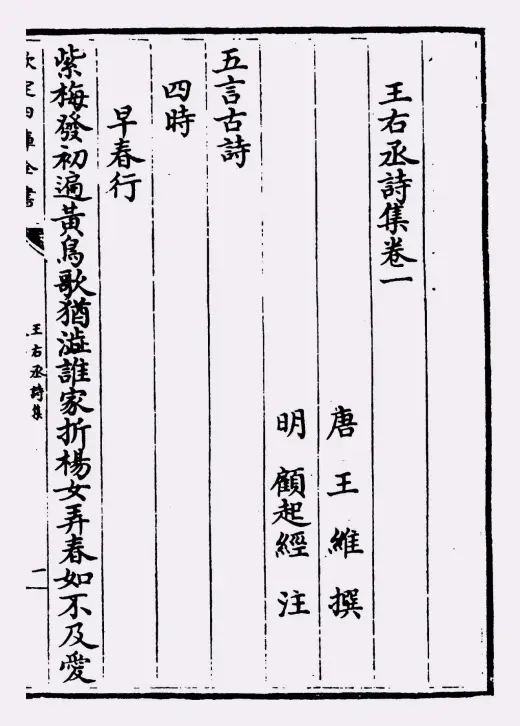 王右丞詩集卷一
唐王維撰
明顧起經注
五言古詩
四時
早春行
紫梅發初遍黃鳥歌猶澁誰家折楊女弄春如不及愛
欽定四庫全書
王右丞詩集
一